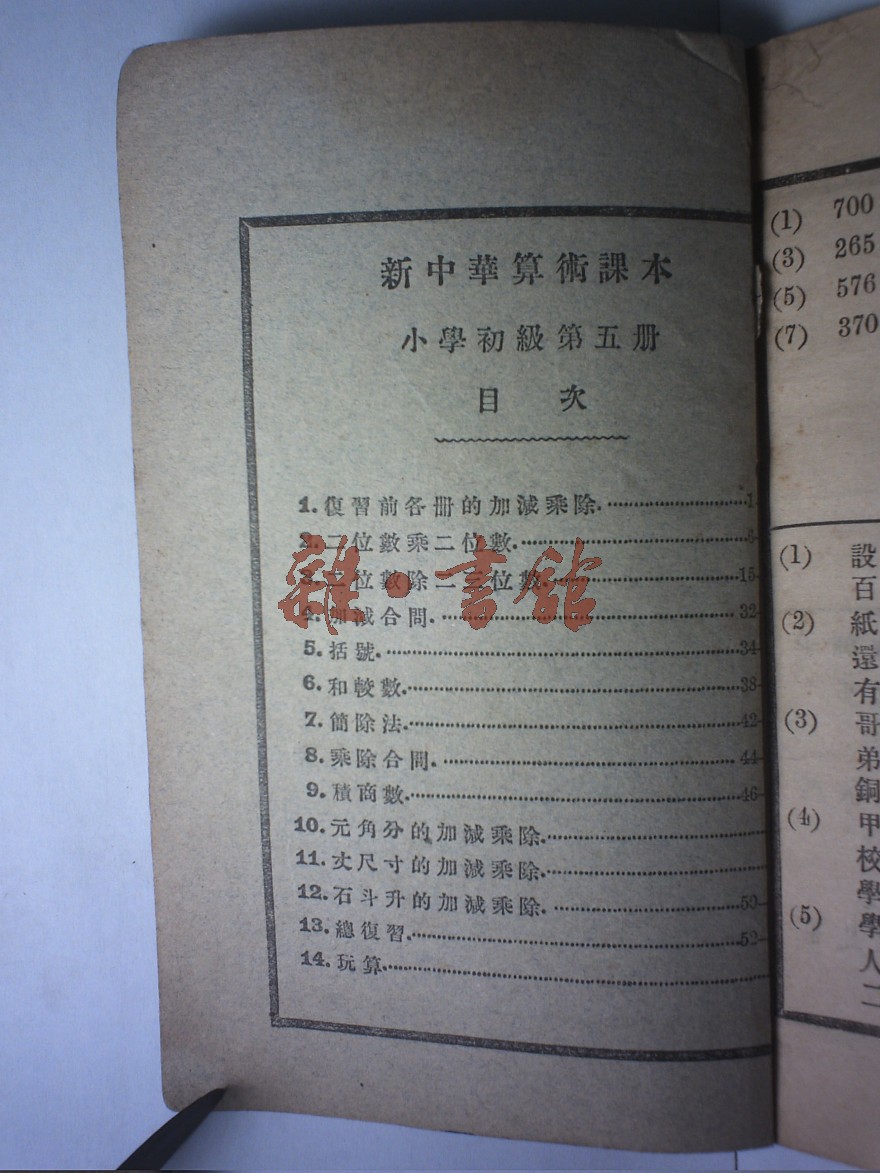 新中華算術課本
小學初級第五册
目 次
1. 復習前各册的加減乘除 1
2. 二位數乘二位數 6
3. 二位數除二三位數 15
4. 加減合問 32
5. 括號 34
6. 和較數 38
7. 簡除法 42
8. 乘除合問 44
9. 積商數 46
10. 元角分的加減乘除
11. 丈尺寸的加減乘除
12. 石斗升的加減乘除 50
13. 總復習 52
14. 玩算
雜·書館
(1) 700
(3) 265
(5) 576
(7) 370
(1) 設
百
(2) 紙
還
有
(3) 哥
弟
銅
(4) 甲
校
學
(5) 學
人
二